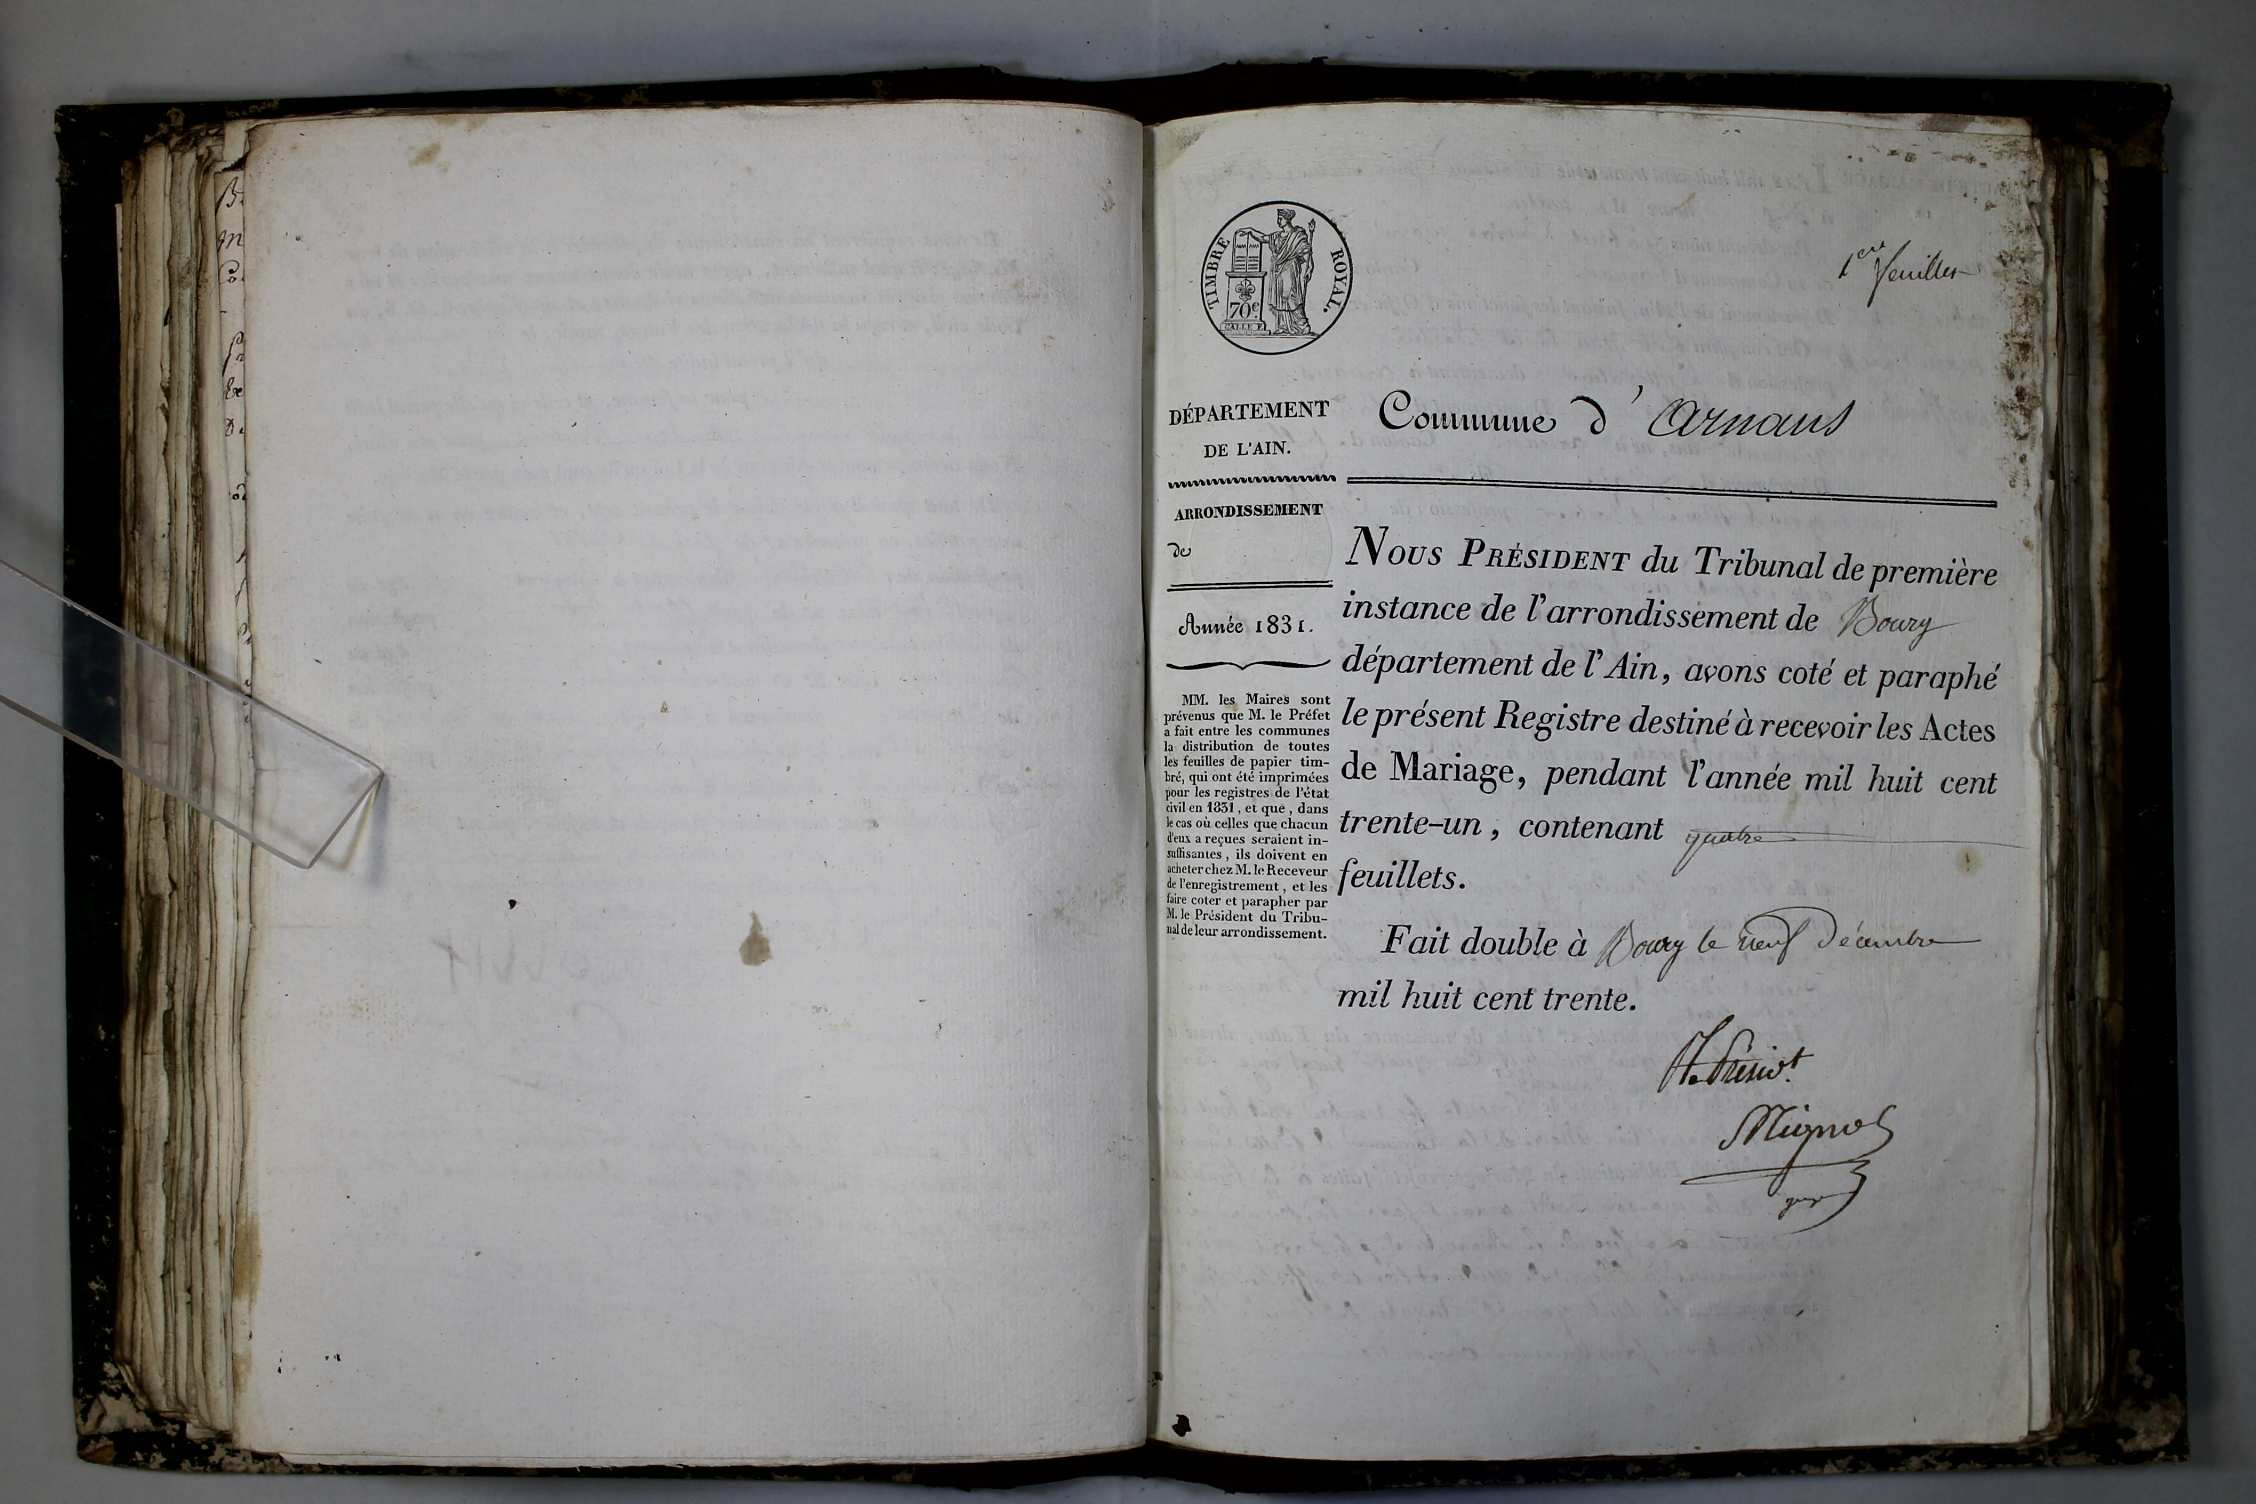 TIMBRE ROYAL.
70c.
1ere feuillet
DÉPARTEMENT
DE L'AIN.
ARRONDISSEMENT
de
Année 1831.
MM. les Maires sont
prévenus que M. le Préfet
a fait entre les communes
la distribution de toutes
les feuilles de papier tim-
bré, qui ont été imprimées
pour les registres de l'état
civil en 1831, et que, dans
le cas où celles que chacun
d'eux a reçues seraient in-
suffisantes, ils doivent en
acheter chez M. le Receveur
de l'enregistrement, et les
faire coter et parapher par
M. le Président du Tribu-
nal de leur arrondissement.
Commune d' Arnans
NOUS PRÉSIDENT du Tribunal de première
instance de l'arrondissement de Bourg
département de l'Ain, avons coté et paraphé
le présent Registre destiné à recevoir les Actes
de Mariage, pendant l'année mil huit cent
trente-un, contenant quatre
feuillets.
Fait double à Bourg le neuf Décembre
mil huit cent trente.